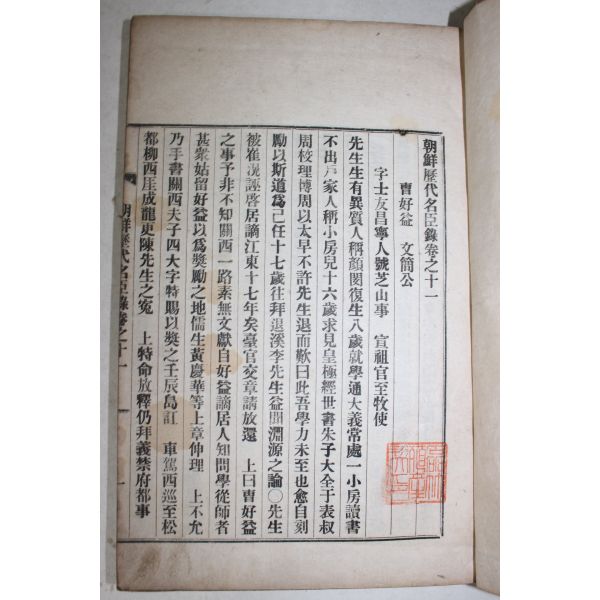 朝鮮歷代名臣錄卷之十一
曺好益 文簡公
字士友昌寧人號芝山事 宣祖官至牧使
先生生有異質人稱顏閔復生八歲就學通大義常處一小房讀書
不出戶家人稱小房兒十六歲求見皇極經世書朱子大全于表叔
周校理博周以太早不許先生退而歎曰此吾學力未至也愈自刻
勵以斯道爲己任十七歲往拜退溪李先生益聞淵源之論〇先生
被崔滉誣啓居謫江東十七年矣臺官交章請放還 上曰曺好益
之事予非不知關西一路素無文獻自好益謫居人知問學從師者
甚衆姑留好益以爲獎勵之地儒生黃慶華等上章伸理 上不允
乃手書關西夫子四大字特賜以獎之壬辰島訌 車駕西巡至松
都柳西厓成龍更陳先生之寃 上特命放釋仍拜義禁府都事
朝鮮歷代名臣錄卷之十一 一